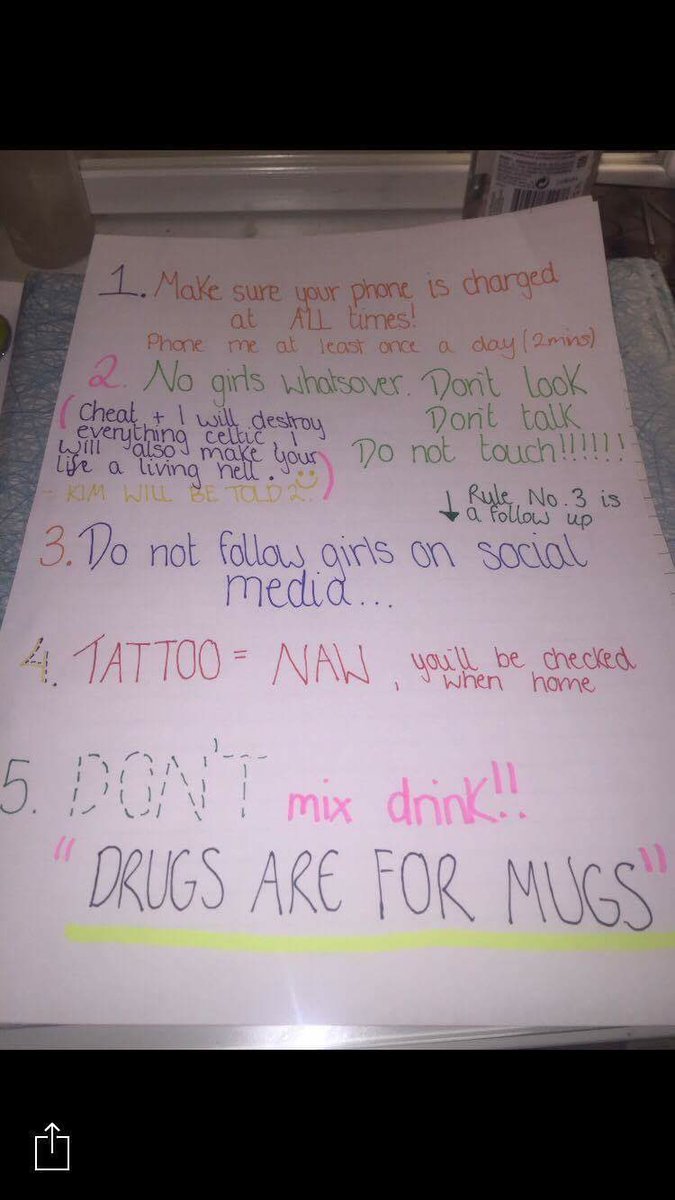 1. Make sure your phone is charged
at ALL times!
Phone me at least once a day (2mins)
2. No girls whatsover. Don't look
Don't talk
Do not touch!!!!!!
(Cheat + I will destroy
everything celtic, I
will also make your
life a living hell.)
- KIM WILL BE TOLD 2
↓ Rule No.3 is
a follow up
3. Do not follow girls on social
media...
4. TATTOO = NAW, you'll be checked
when home
5. DON'T mix drink!!
"DRUGS ARE FOR MUGS"